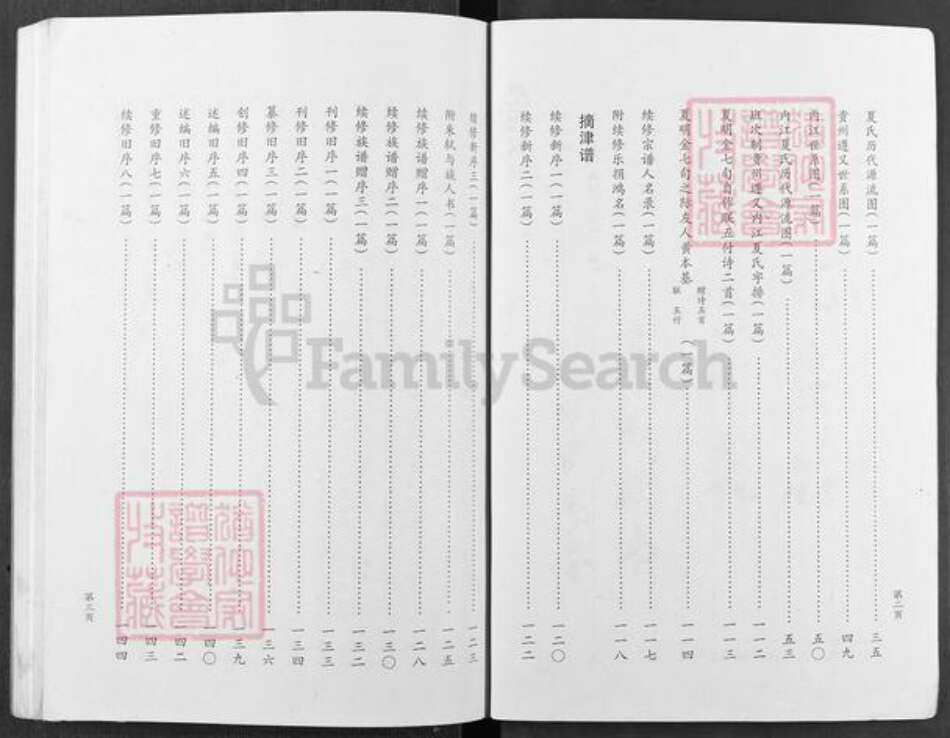 夏氏历代源流图(一篇)……三五
贵州遵义世系图(一篇)……四九
内江世系图(一篇)……五〇
内江夏氏历代源流图(一篇)……五三
班次制贵州遵义内江夏氏字榜(一篇)……一一二
夏明金七旬自作联五付诗二首(一篇)……一一三
夏明金七旬之际友人黄本基赠诗五首联五付(一篇)……一一四
续修宗谱人名录(一篇)……一一七
附续修乐捐鸿名(一篇)……一一八
摘津谱
续修新序一(一篇)……一二〇
续修新序二(一篇)……一二二
第二页
续修新序三(一篇)……一二三
附朱轼与族人书(一篇)……一二五
续修族谱赠序一(一篇)……一二八
续修族谱赠序二(一篇)……一三〇
续修族谱赠序三(一篇)……一三二
刊修旧序一(一篇)……一三三
刊修旧序二(一篇)……一三四
纂修旧序三(一篇)……一三六
创修旧序四(一篇)……一三九
述编旧序五(一篇)……一四〇
述编旧序六(一篇)……一四二
重修旧序七(一篇)……一四三
续修旧序八(一篇)……一四四
第三页
FamilySearch